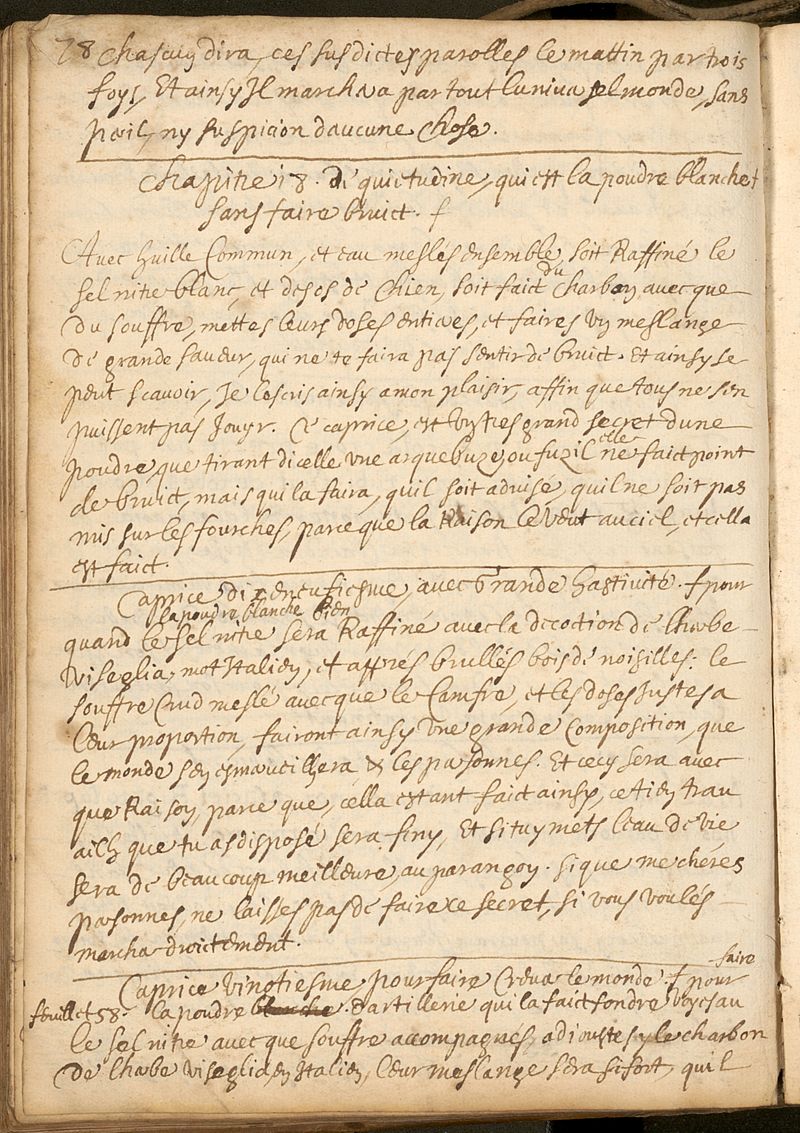 78 chascun dira, ces susdictes parolles le mattin par trois
foys, Et ainsy Il marchera par tout luniversel monde, sans
peril, ny suspicion daucune Chose.
Chapitre 18. de quietudine, qui est la poudre blanche
sans faire bruict.
Avec huille Commun, et eau meslés ensemble, soit Raffiné le
sel nitre blanc, et des os de Chien, soit faict du Charbon avecque
du souffre, mettes leurs doses entieres, et faires un meslange
de grande saveur, qui ne te faira pas sentir de bruict. Et ainsy se
peut scavoir, Je lescris ainsy a mon plaisir, affin que tous ne sen
puissent pas Jouyr. Ce caprice, est un tres grand secret dune
poudre, que tirant dicelle une arquebuze, ou fuzil elle ne faict point
de bruict, mais qui la faira, quil soit advise, quil ne soit pas
mis sur les fourches, parce que la Raison le veut au ciel, et cella
est faict.
Caprice dixneufiesme, avec Grande hastivité. pour
la poudre blanche bien
quand le sel nitre sera Raffiné avec la decoction de lherbe
viseglia, mot Italien, et apprés brullés bois de noisilles: le
souffre Crud meslé avecque le Camfre, et les doses Justes a
leur proportion, fairont ainsy une grande Composition, que
le monde sen esmerveilhera & les personnes. Et cecy sera avec
que Raison, parce que, cella estant faict ainsy, ce tien trav
ailh que tu as disposé sera finy, Et si tu y mets leau de vie
sera de beaucoup meilleure, au parangon. si que mes chéres
personnes, ne laisses pas de faire ce secret, si vous voulés
marcher droictement.
Caprice vingtiesme pour faire Crever le monde. pour faire
feuillet 58 la poudre blanche dartillerie qui la faict fondre voyes au
le sel nitre avecque souffre accompagnes, adioustes y le charbon
de lherbe viseglia en Italien, leur meslange sera si fort, quil